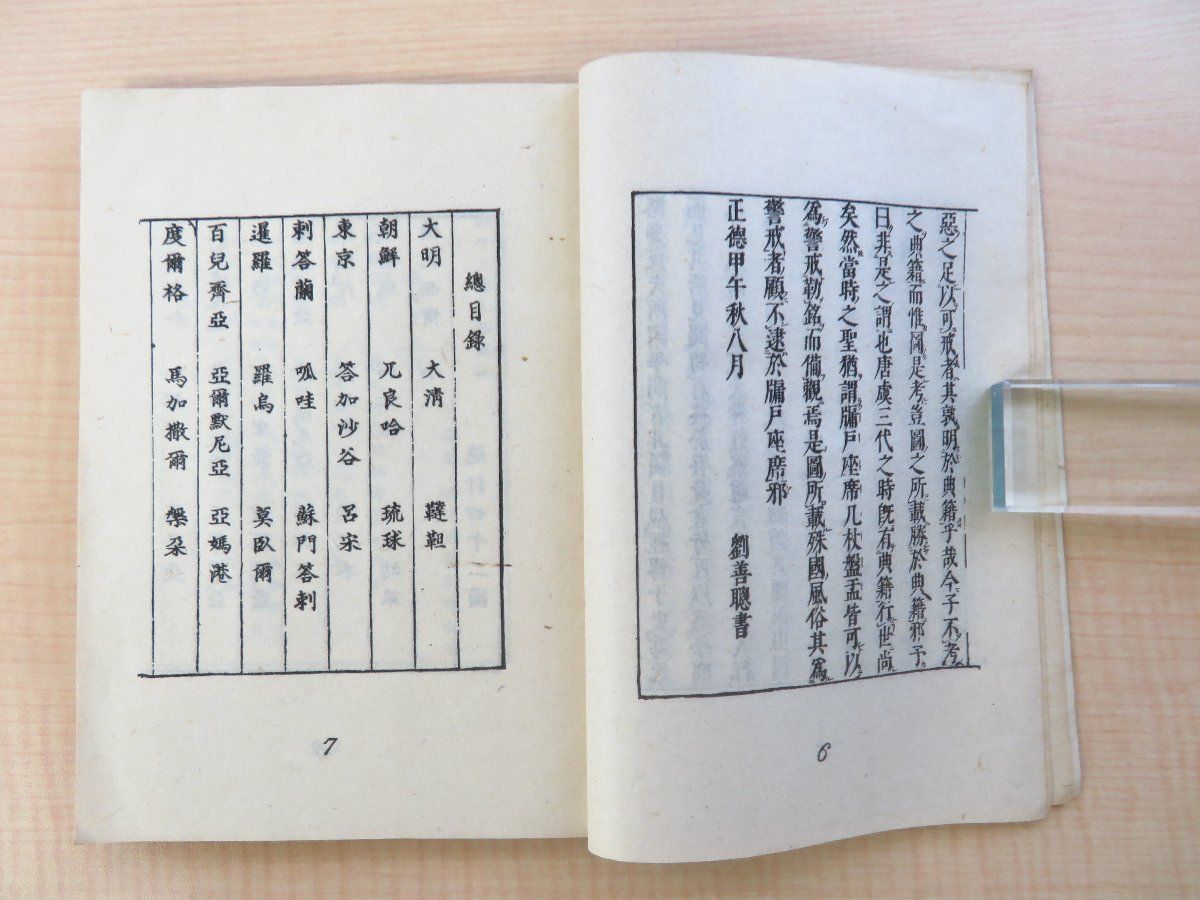 惡之足以可戒者其孰明於典籍乎哉今子不考
之典籍而惟圖是考豈圖之所載勝於典籍邪予
曰非是之謂也唐虞三代之時既有典籍行世尚
矣然當時之聖猶謂牖戶座席几杖盤盂皆可以
爲警戒勒銘而備觀焉是圖所載殊國風俗其爲
警戒者顧不逮於牖戶座席邪
正德甲午秋八月 劉善聰書
6
總目錄
大明 大淸 韃靼
朝鮮 兀良哈 琉球
東京 答加沙谷 呂宋
刺答蘭 呱哇 蘇門答剌
暹羅 羅烏 莫臥爾
百兒齊亞 亞爾默尼亞 亞媽港
度爾格 馬加撒爾 槃朶
7